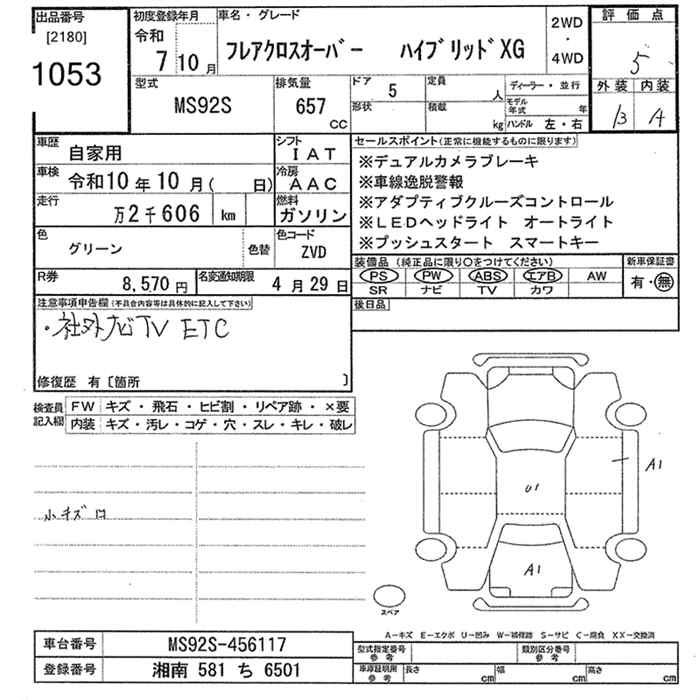 出品番号
[2180]
1053
初度登録年月
令和
7 10 月
車名・グレード
フレアクロスオーバー ハイブリッドXG
2WD
・
4WD
評価点
5
外装 内装
B A
型式
MS92S
排気量
657
CC
ドア 5
形状
定員 人
積載 kg
ディーラー・並行
モデル年式 年
ハンドル 左・右
車歴 自家用
シフト IAT
車検 令和10年10月( 日)
冷房 AAC
走行 万2千606 km
燃料 ガソリン
色 グリーン 色替
色コード ZVD
R券 8,570円
名変通知期限 4月29日
セールスポイント(正常に機能するものに限ります)
※デュアルカメラブレーキ
※車線逸脱警報
※アダプティブクルーズコントロール
※LEDヘッドライト オートライト
※プッシュスタート スマートキー
装備品(純正品に限り○をつけてください)
PS PW ABS エアB AW
SR ナビ TV カワ
新車保証書
有・無
後日品
注意事項申告欄(不具合内容等は具体的に記入して下さい)
・社外ナビTV ETC
修復歴 有〔箇所 〕
検査員記入欄
FW キズ・飛石・ヒビ割・リペア跡・×要
内装 キズ・汚レ・コゲ・穴・スレ・キレ・破レ
小キズ
A1
U1
A1
スペア
A−キズ E−エクボ U−凹み W−補修跡 S−サビ C−腐食 XX−交換済
車台番号 MS92S-456117
登録番号 湘南 581 ち 6501
型式指定番号
参考
類別区分番号
参考
車庫証明用
参考
長さ cm 幅 cm 高さ cm